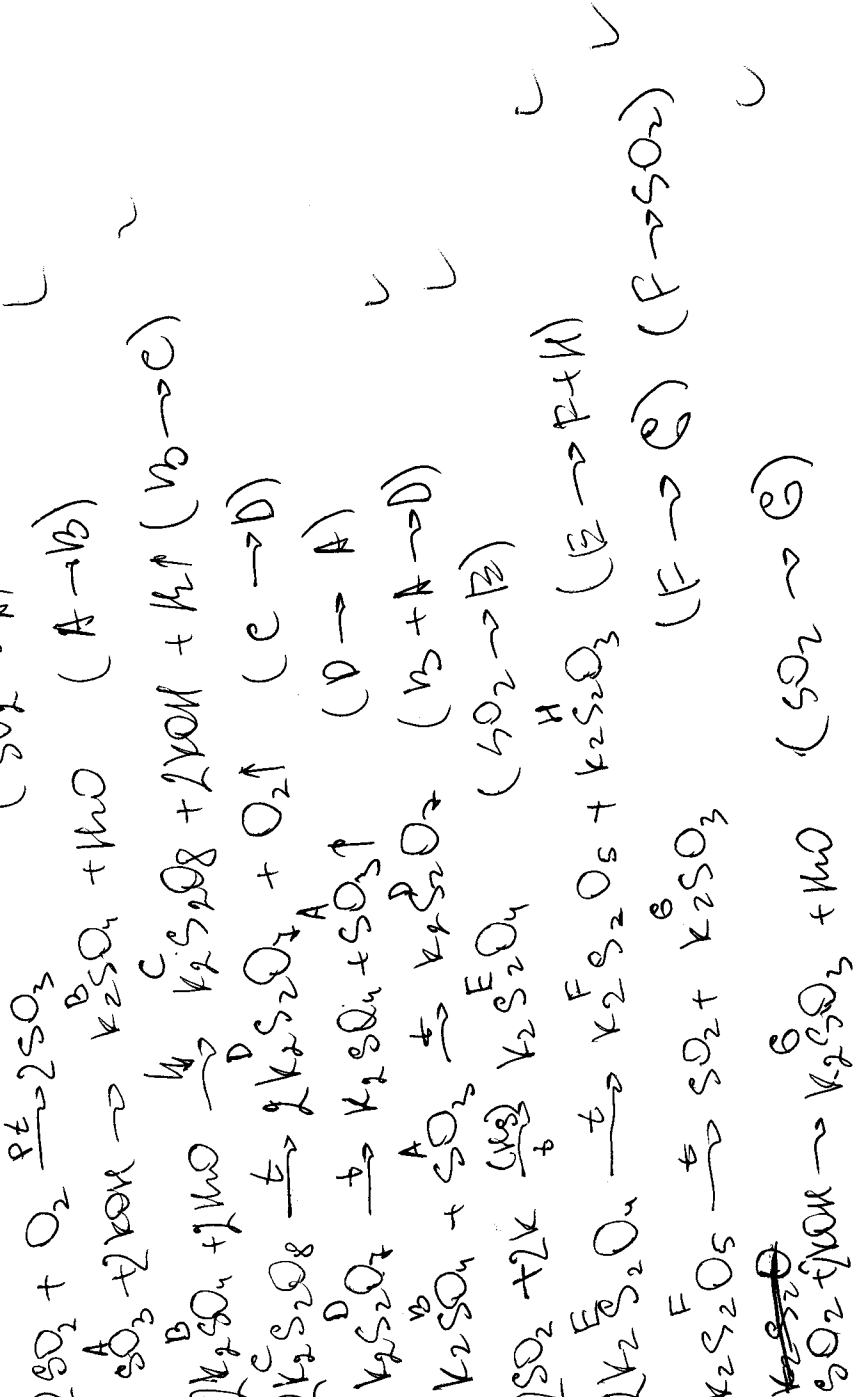 2SO₂ + O₂ —Pt→ 2SO₃ (SO₂
SO₃ + 2KOH → K₂SO₄ + H₂O (A → B)
2K₂SO₄ + 2H₂O → K₂S₂O₈ + 2KOH + H₂↑ (B → C)
2K₂S₂O₈ —t→ 2K₂S₂O₇ + O₂↑ (C → D)
K₂S₂O₇ —t→ K₂SO₄ + SO₃↑ (D → A)
K₂SO₄ + SO₃ —t→ K₂S₂O₇ (B + A → D)
2SO₂ + 2K —(Hg) t→ K₂S₂O₄ (SO₂ → E)
2K₂S₂O₄ —t→ K₂S₂O₅ + K₂S₂O₃ (E → F + H)
K₂S₂O₅ —t→ SO₂ + K₂SO₃ (F → G) (F → SO₂)
SO₂ + 2KOH → K₂SO₃ + H₂O (SO₂ → G)